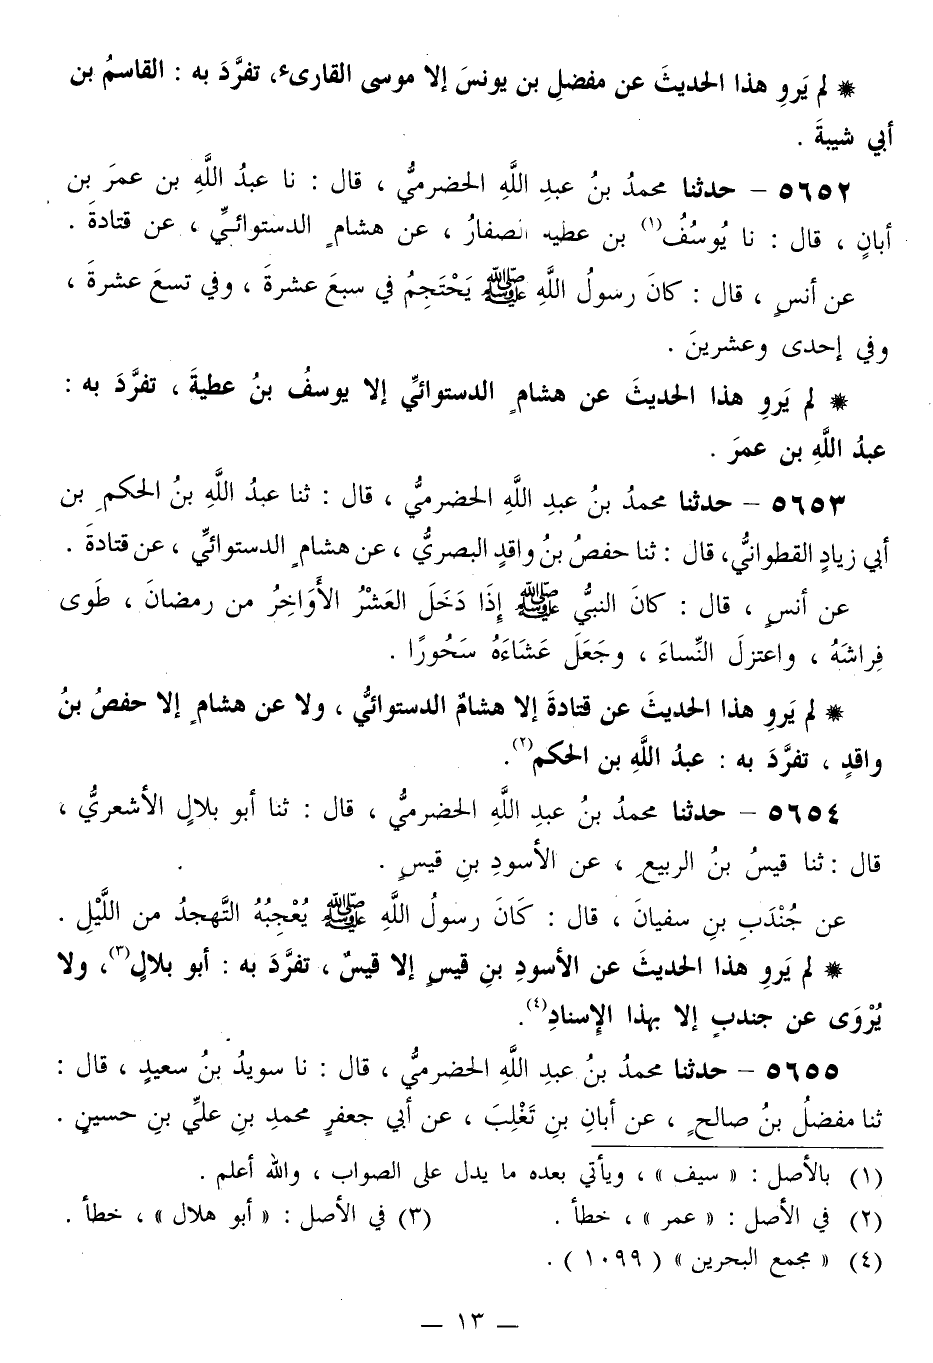 * لم يَروِ هذا الحديثَ عن مفضلِ بن يونسَ إلا موسى القارىء، تفرَّدَ به : القاسمُ بن
أبي شيبةَ .
٥٦٥٢ – حدثنا محمدُ بنُ عبدِ اللَّهِ الحضرميُّ ، قال : نا عبدُ اللَّهِ بن عمرَ بن
أبانٍ ، قال : نا يُوسُفُ(١) بن عطية الصفارُ ، عن هشامٍ الدستوائيِّ ، عن قتادةَ .
عن أنسٍ ، قال : كانَ رسولُ اللَّهِ ﷺ يَحْتَجِمُ في سبعَ عشرةَ ، وفي تسعَ عشرةَ ،
وفي إحدى وعشرينَ .
* لم يَروِ هذا الحديثَ عن هشامٍ الدستوائيِّ إلا يوسفُ بنُ عطيةَ ، تفرَّدَ به :
عبدُ اللَّهِ بن عمرَ .
٥٦٥٣ – حدثنا محمدُ بنُ عبدِ اللَّهِ الحضرميُّ ، قال : ثنا عبدُ اللَّهِ بنُ الحكمِ بن
أبي زيادٍ القطوانيُّ، قال : ثنا حفصُ بنُ واقدٍ البصريُّ ، عن هشامٍ الدستوائيِّ ، عن قتادةَ .
عن أنسٍ ، قال : كانَ النبيُّ ﷺ إِذَا دَخَلَ العَشْرُ الأَوَاخِرُ من رمضانَ ، طَوى
فِراشَهُ ، واعتزلَ النِّساءَ ، وجَعَلَ عَشَاءَهُ سَحُورًا .
* لم يَروِ هذا الحديثَ عن قتادةَ إلا هشامٌ الدستوائيُّ ، ولا عن هشامٍ إلا حفصُ بنُ
واقدٍ ، تفرَّدَ به : عبدُ اللَّهِ بن الحكم(٢).
٥٦٥٤ – حدثنا محمدُ بنُ عبدِ اللَّهِ الحضرميُّ ، قال : ثنا أبو بلالٍ الأشعريُّ ،
قال : ثنا قيسُ بنُ الربيعِ ، عن الأسودِ بنِ قيسٍ .
عن جُنْدَبِ بنِ سفيانَ ، قال : كَانَ رسولُ اللَّهِ ﷺ يُعْجِبُهُ التَّهجدُ من اللَّيْلِ .
* لم يَروِ هذا الحديثَ عن الأسودِ بنِ قيسٍ إلا قيسٌ ، تفرَّدَ به : أبو بلالٍ(٣)، ولا
يُرْوَى عن جندبٍ إلا بهذا الإِسنادِ(٤).
٥٦٥٥ – حدثنا محمدُ بنُ عبدِ اللَّهِ الحضرميُّ ، قال : نا سويدُ بنُ سعيدٍ ، قال :
ثنا مفضلُ بنُ صالحٍ ، عن أبانِ بنِ تَغْلِبَ ، عن أبي جعفرٍ محمدِ بنِ عليِّ بنِ حسينٍ .
(١) بالأصل : « سيف » ، ويأتي بعده ما يدل على الصواب ، والله أعلم .
(٢) في الأصل : « عمر » ، خطأ . (٣) في الأصل : « أبو هلال » ، خطأ .
(٤) « مجمع البحرين » ( ١٠٩٩ ) .
— ١٣ —